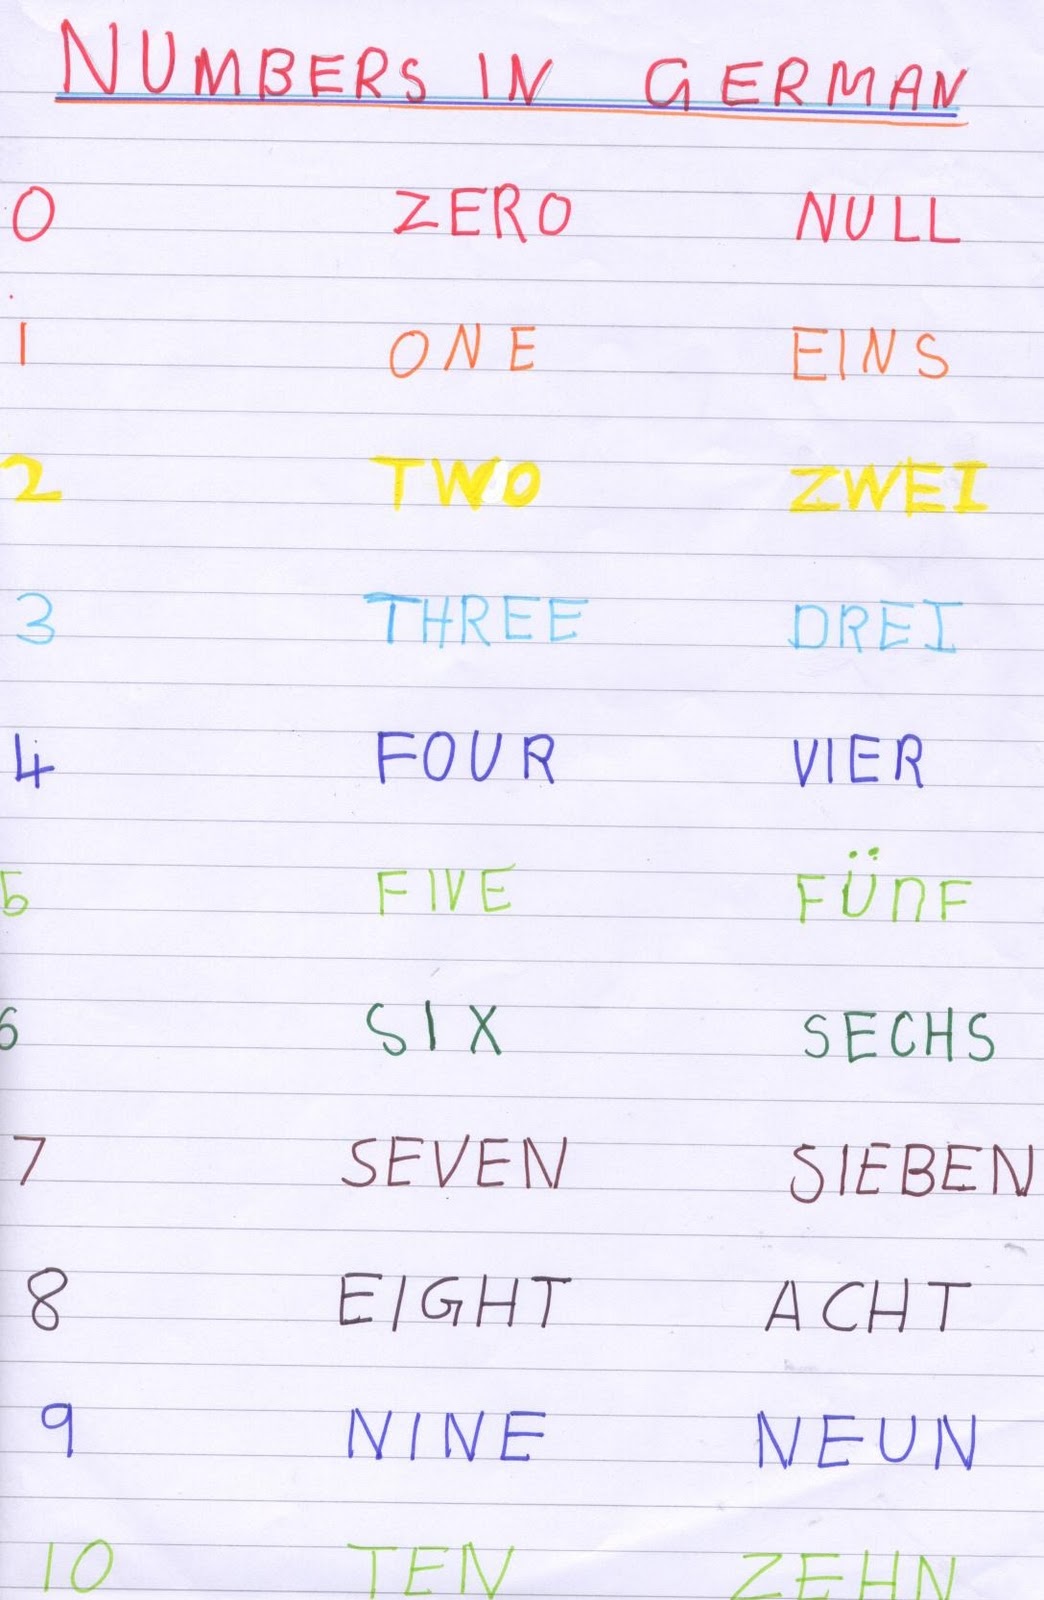 NUMBERS IN GERMAN
0 ZERO NULL
1 ONE EINS
2 TWO ZWEI
3 THREE DREI
4 FOUR VIER
5 FIVE FÜNF
6 SIX SECHS
7 SEVEN SIEBEN
8 EIGHT ACHT
9 NINE NEUN
10 TEN ZEHN